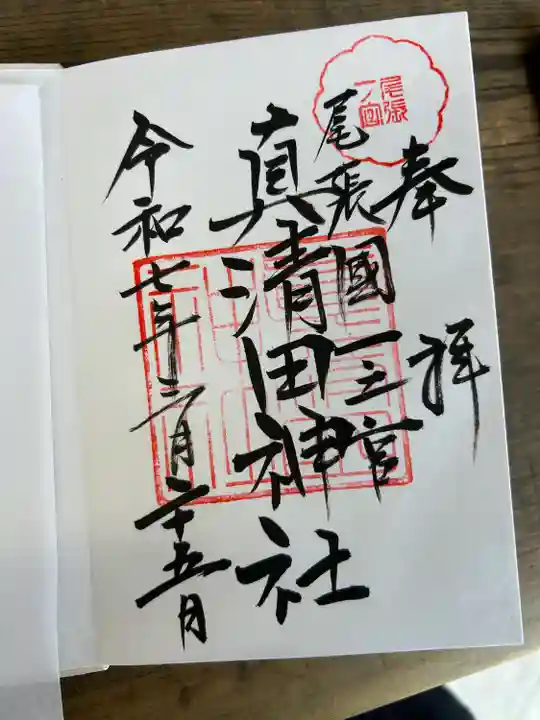 奉拝
尾張
一宮
尾張國一之宮
真清田神社
令和七年三月二十五日